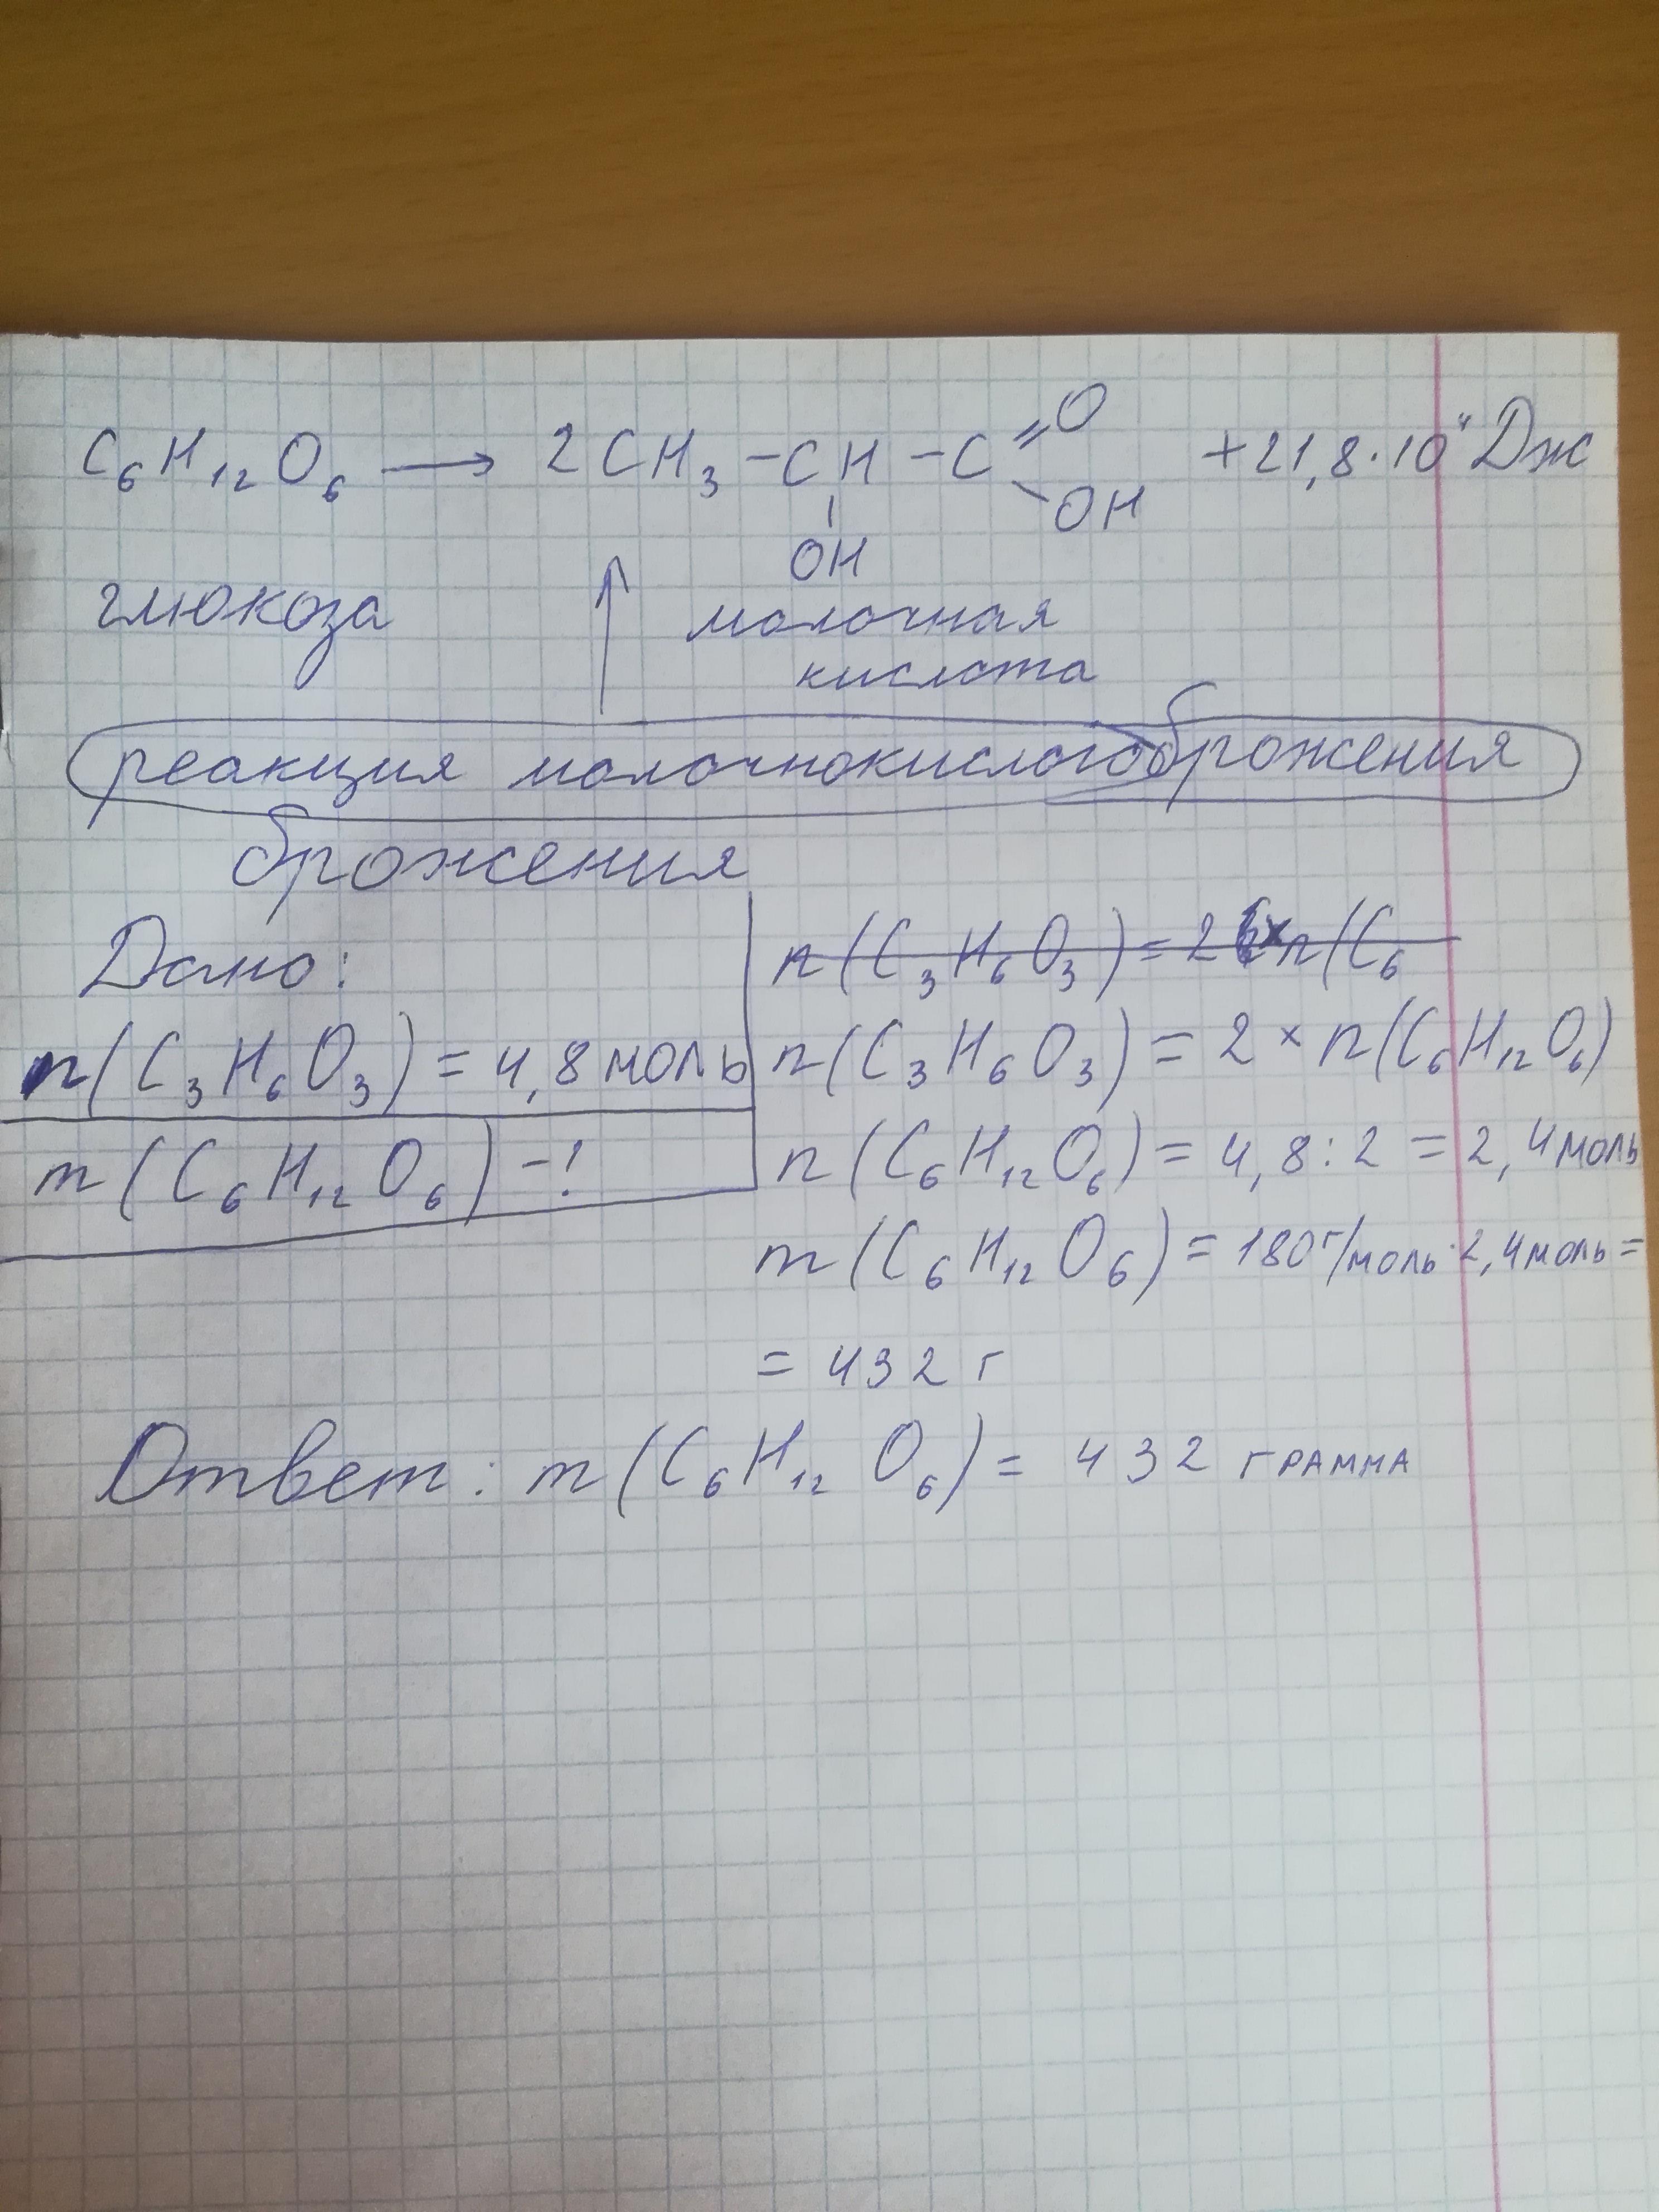 C₆H₁₂O₆ → 2CH₃-CH-C=O +21,8·10⁴ Дж
-OH
OH
глюкоза
молочная
кислота
реакция молочнокислого брожения
брожения
Дано:
n(C₃H₆O₃) = 4,8 моль
m(C₆H₁₂O₆) -!
n(C₃H₆O₃) = 2 × n(C₆
n(C₃H₆O₃) = 2 × n(C₆H₁₂O₆)
n(C₆H₁₂O₆) = 4,8 : 2 = 2,4 моль
m(C₆H₁₂O₆) = 180 г/моль · 2,4 моль =
= 432 г
Ответ: m(C₆H₁₂O₆) = 432 грамма